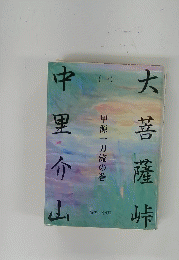 大菩薩峠
甲源一刀流の巻
中里介山